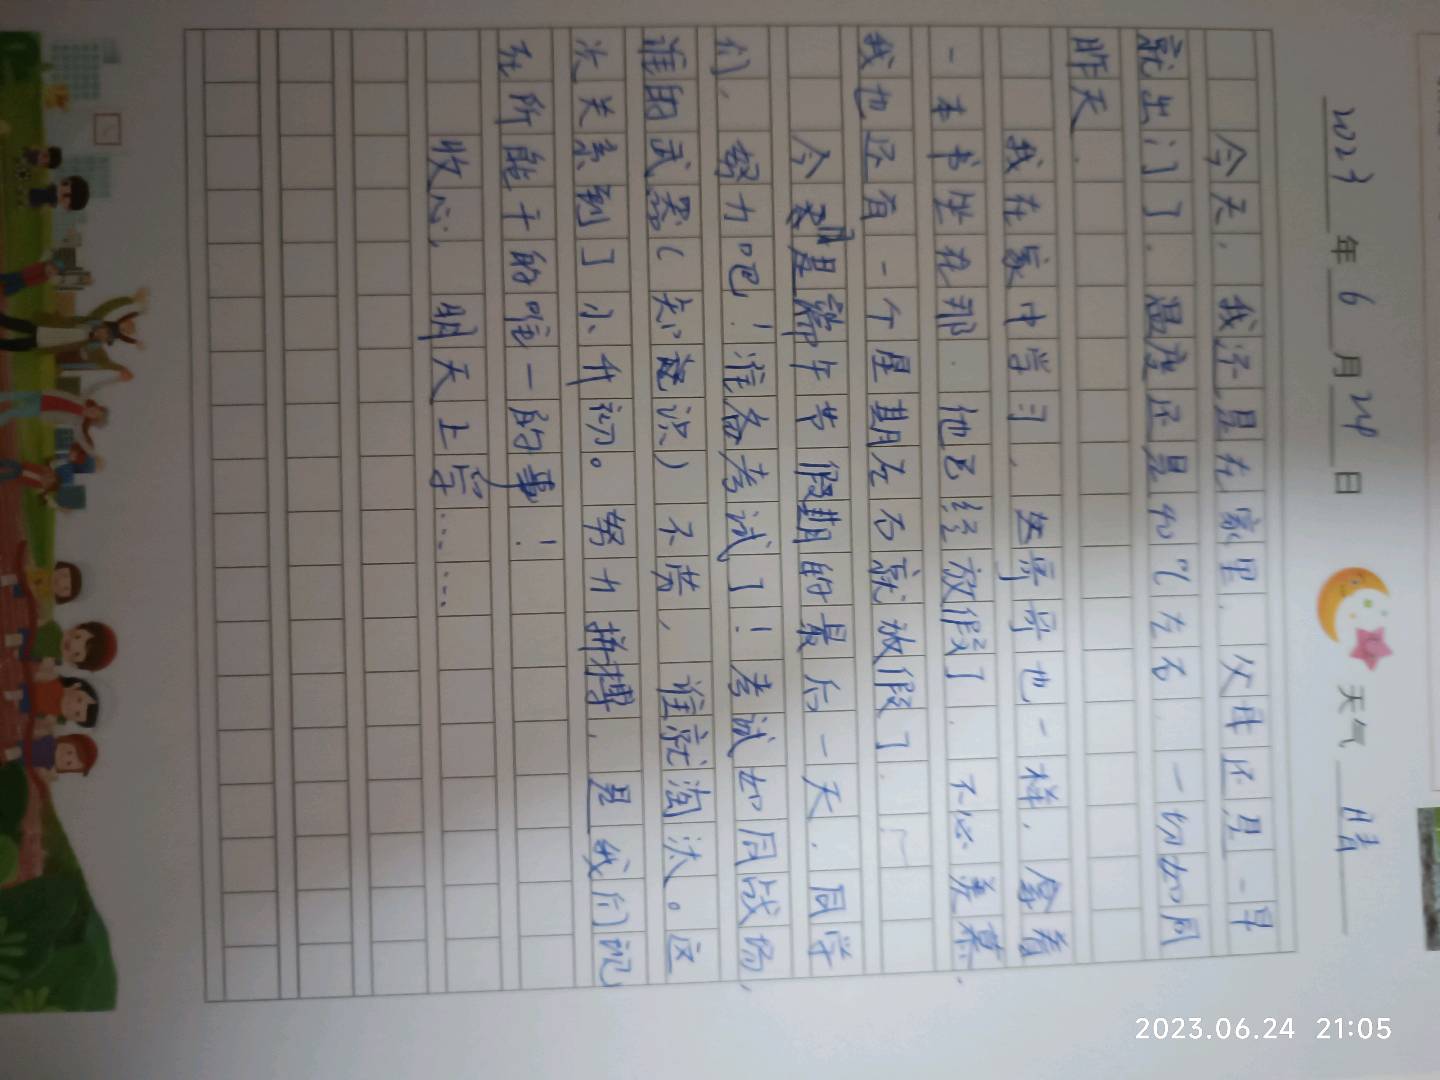 2023年6月24日 天气 晴
今天，我还是在家里，父母还是一早
就出门了，温度还是40℃左右，一切如同
昨天.
我在家中学习，哥哥也一样，拿着
一本书坐在那.他已经放假了.不必羡慕，
我也还有一个星期左右就放假了.
今天是端午节假期的最后一天.同学
们，努力吧！准备考试了！考试如同战场，
谁的武器（知识）不带，谁就淘汰。这
次关系到了小升初。努力拼搏，是我们现
在所能干的唯一的事！
收心，明天上学……
2023.06.24 21:05